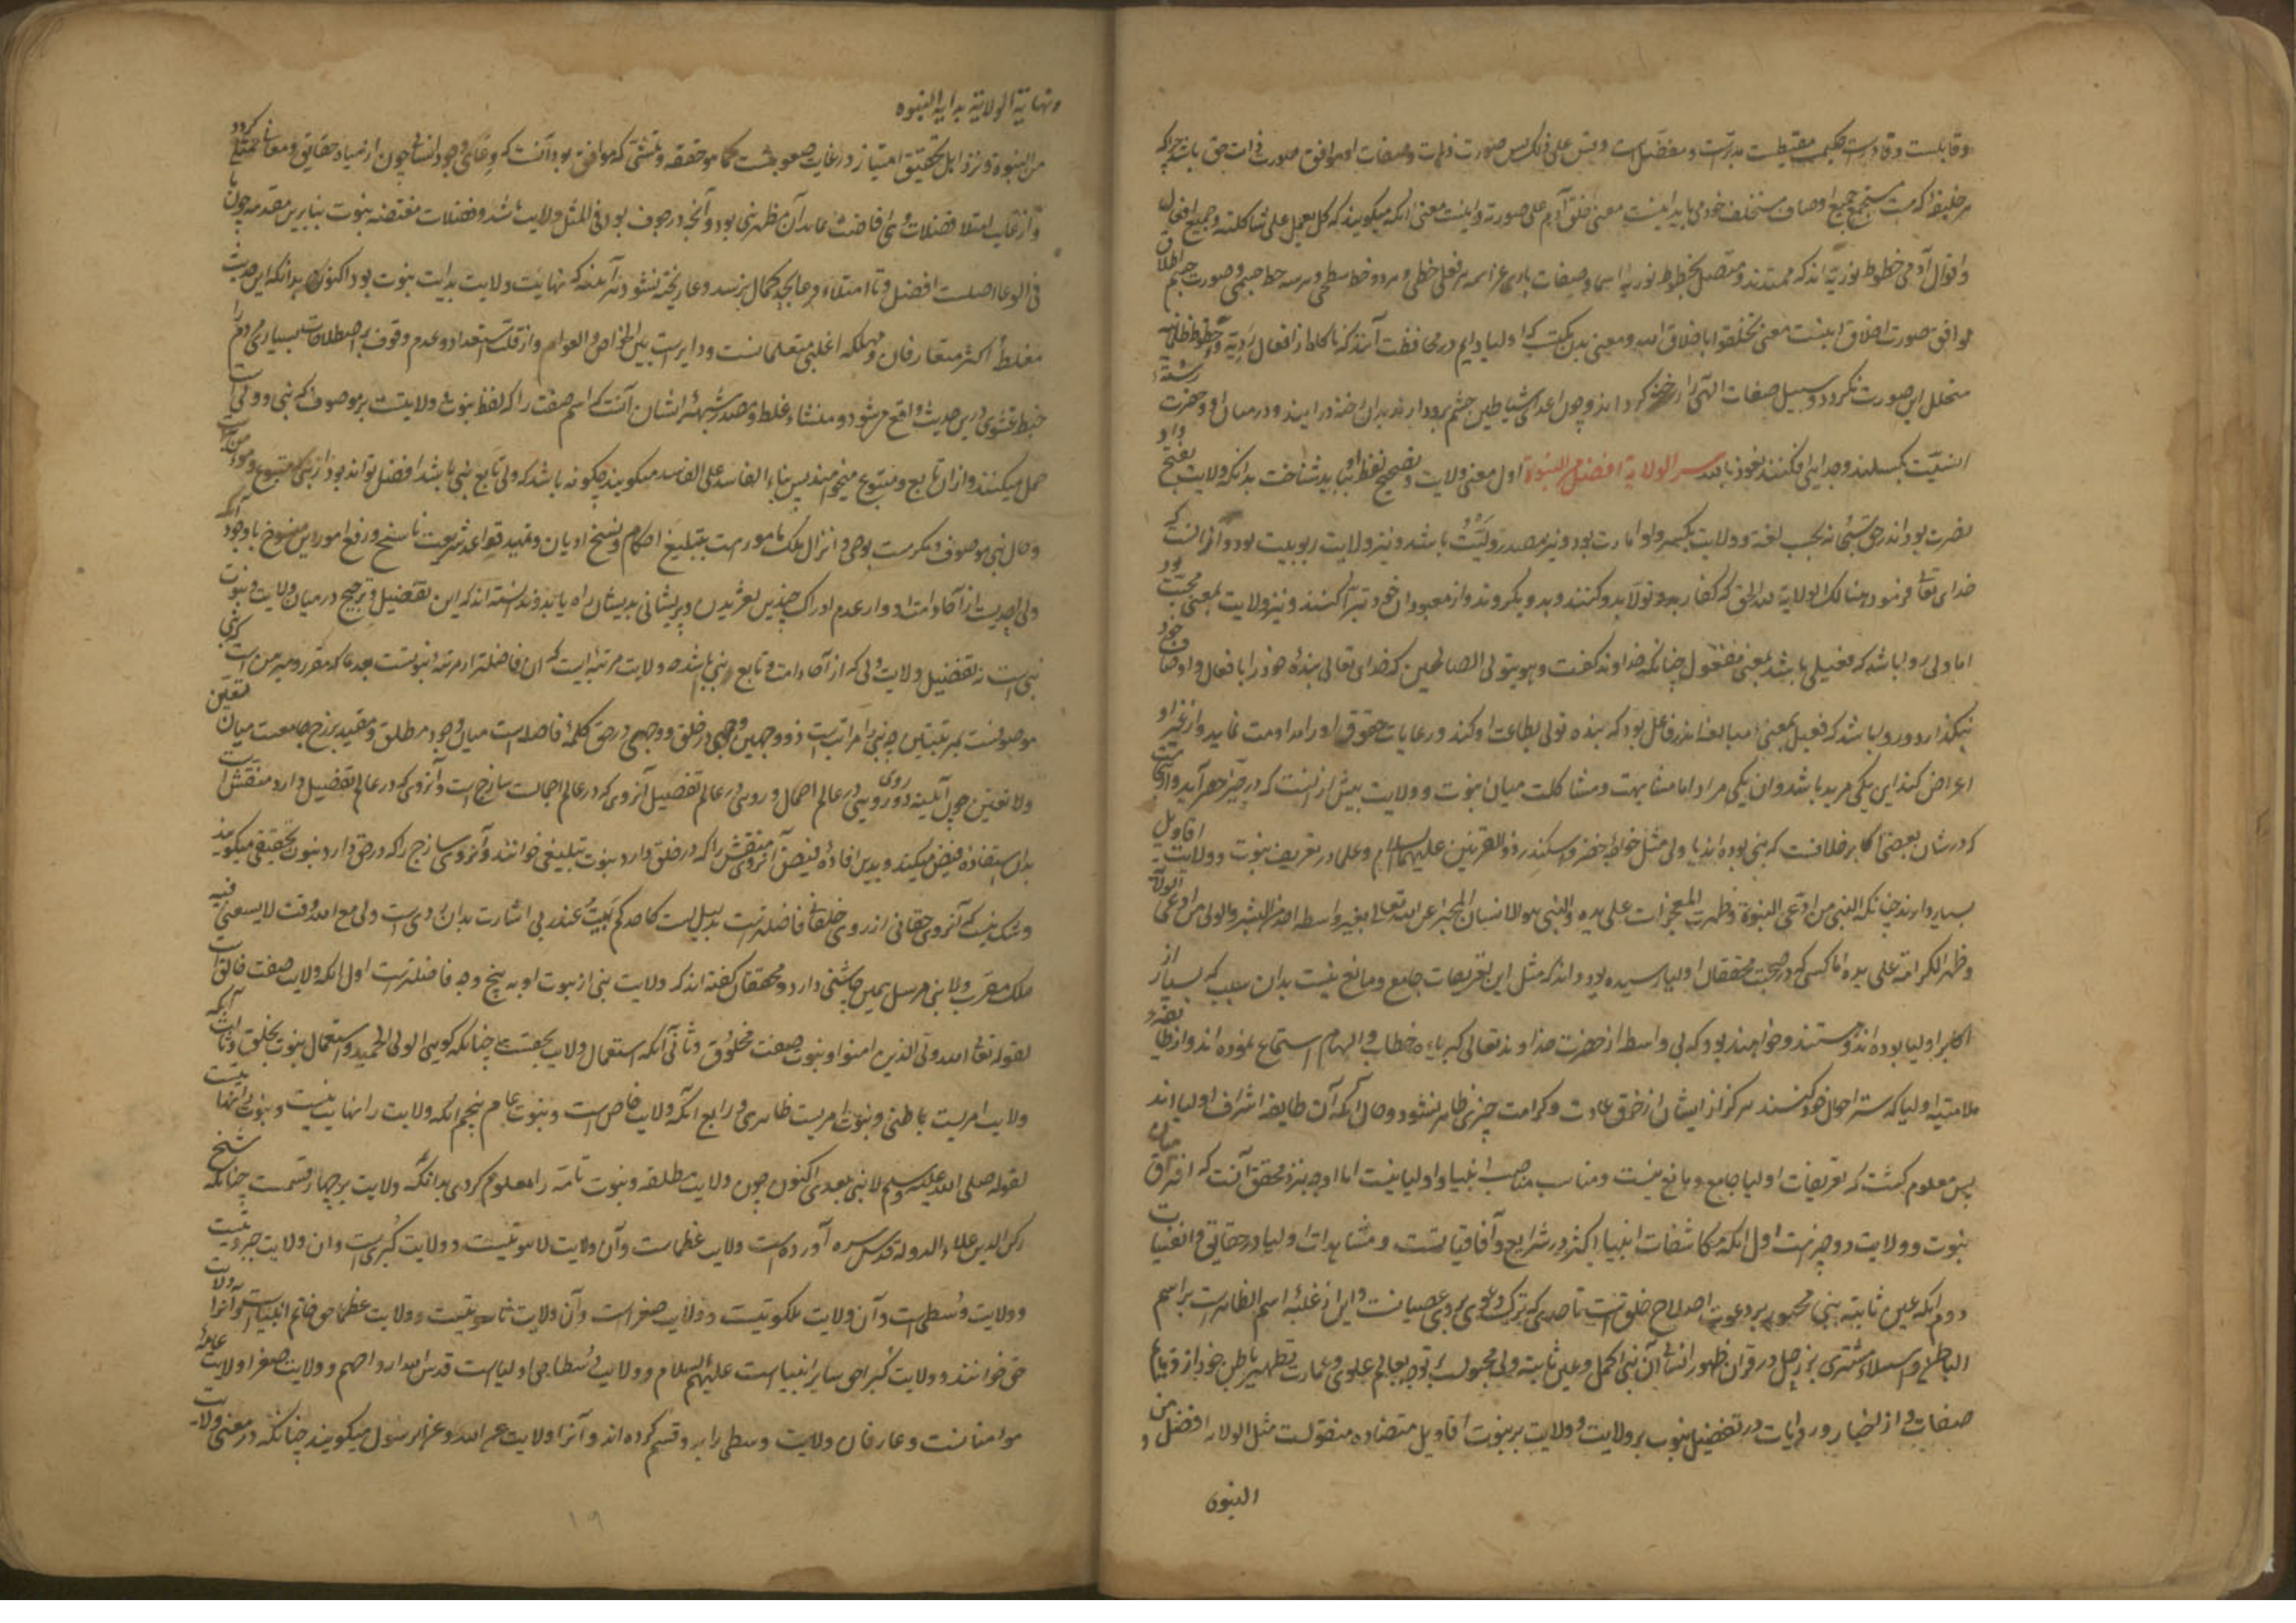 وقابلست وقادرست حکیمست مقتبطست مدبرست ومفصل است وقس علی ذلک پس صورت ذات وصفات او موافق صورت ذات حق باشد چراکه
هر خلیفه که هست مستجمع جمیع اوصاف مستخلف خود می باید اینست معنی خلق آدم علی صورته واینست معنی آنکه میکویند که کل یعمل علی شاکلته وجمیع افعال
واقوال آدمی خطوط نوریه اند که ممتدند ومتصل بخطوط نوریه اسما وصفات باری عز اسمه هر فعلی خطی وهر دو خط سطحی وهر سه خط جسمی وصورت جسم اخلاق
موافق صورت اخلاق اینست معنی تخلقوا باخلاق الله ومعنی بدین نکته که اولیا دایم در محافظت آنند که ناکاه از افعال ردیة وخطوط ظلمانیه
متخلل این صورت نکردد وسبیل صفات الهی را رخنه کرداند وچون اعدای شیاطین چشم برو دارند بدان رخنه درآیند ودر میان او وحضرت رشته
انسیّت بکسلند وجدایی افکنند نعوذ بالله سر الولایة افضل من النبوة اول معنی ولایت وتصحیح لفظ او بباید شناخت بدانکه ولایت بفتح واو
نصرت بود اندر حق تسمیه بحسب لغة وولایت بکسر واو امارت بود ونیز مصدر وَلَیْتُ باشد ونیز ولایت ربوبیت بود واز آنست که
خدای تعالی فرمود هنالک الولایة لله الحق که کفار بدو تولا بدو کنند وبدو بکروند واز معبودان خود تبرا کنند ونیز ولایت بمعنی محبت بود
اما ولی روا باشد که فعیلی باشد بمعنی مفعول چنانکه خداوند کفت وهو یتولی الصالحین که خدای تعالی بنده خود را بافعال واوصاف خود
نبکذارد وروا باشد که فعیل بمعنی مبالغه اندر فاعل بود که بنده تولی بطاعت او کند ورعایات حقوق او را مداومت نماید واز غیر او
اعراض کند این یکی مرید باشد وآن یکی مراد اما مشابهت ومشاکلت میان نبوت وولایت بیش از آنست که در حیز حصر آید
که در شان بعضی اکابر خلافست که نبی بوده اند یا ولی مثل خواجه خضر واسکندر ذو القرنین علیهما السلام وعلما در تعریف نبوت وولایت اقاویل
بسیار دارند چنانکه النبی من ادعی النبوة وظهرت المعجزات علی یده والنبی هو الانسان المخبر عن الله تعالی بغیر واسطه احد من البشر والولی من ادعی الولایة
وظهر الکرامة علی یده اما کسی که در صحبت محققان اولیا رسیده بود داند که مثل این تعریفات جامع ومانع نیست بدان سبب که بسیار از
اکابر اولیا بوده اند وهستند وخواهند بود که بی واسطه از حضرت خداوند تعالی کبریاءه خطاب والهام استماع نموده اند
ملامتیه اولیا که ستر احوال خود کنند هرکز از ایشان از خرق عادت وکرامت چیزی ظاهر نشود وحال آنکه آن طایفه اشراف اولیا اند
پس معلوم کشت که تعریفات اولیا جامع ومانع نیست ومناسب مناصب انبیا واولیا نیست اما اوجه نزد محقق آنست که افتراق میان
نبوت وولایت دو چیزست اول آنکه مکاشفات انبیا اکثر در شرایع وآفاقیاتست ومشاهدات اولیا در حقایق وانفسیات
دوم آنکه عین ثابته نبی مجبول بر دعوت واصلاح خلق است تا حدی که ترک دعوی بروی عصیانست واین از غلبه اسم الظاهرست بر اسم
الباطن واستیلاء مشتری بر زحل در قران ظهور انشاء آن نبی اکمل وعین ثابته ولی مجبولست بر توجه بعالم علوی وعمارت وتطهیر باطن خود
صفات واز اخبار وروایات در تفضیل نبوت بر ولایت وولایت بر نبوت اقاویل متضاده منقولست مثل الولایة افضل من
النبوة
ونهایة الولایة بدایة النبوة
من النبوة ونزد اهل تحقیق امتیاز در غایت صعوبتست کما هو حقه وتمشی که موافق بود آنست که وعای وجود انسانی چون از صیاد حقایق ومعانی ممتلی کردد
واز غایت امتلا فضلات وی افاضت نماید آن مظهر نبی بود وآنچه در جوف بود فی المثل ولایت باشد وفضلات مفتضه نبوت بنابرین مقدمه چون ما
فی الوعا اصلست افضل وتا امتلاء وعا بحد کمال نرسد وعا ریخته نشود درآینه که نهایت ولایت بدایت نبوت بود اکنون بدانکه این حدیث
مغلط اکثر متعارفان ومهلکه اغلب متعلمانست ودایرست بین الخواص والعوام واز قلت استعداد وعدم وقوف بر اصطلاحات بسیاری مردم را
خبط عشوی درین حدیث واقع میشود ومنشاء غلط ومصدر شبهه ایشان آنست که اسم صفت را که لفظ نبوت وولایتست بر موصوف که نبی وولی است
حمل میکنند وازان تابع ومتبوع میخواهند پس بناء الفاسد علی الفاسد میکویند چکونه باشد که ولی تابع نبی باشد افضل تواند بود از نبی که متبوع
وحال نبی موصوف ومکرمست بوحی وانزال ملک مامورست بتبلیغ احکام ونسخ ادیان وتمهید قواعد شریعت ناسخ ورفع امور این منسوخ باوجود آنکه
ولی احدیست از آحاد امت او واز عدم ادراک چندین لغزیدن وپریشانی بدیشان راه یابد وندانسته اند که این تفضیل وترجیح در میان ولایت ونبوت
نبی است نه تفضیل ولایت ولی که از آحاد امت وتابع نبی باشد وولایت مرتبه ایست که آن فاضلتر از مرتبه نبوتست
موصوفست بمرتبتین چه نبی را مراتب است ذو وجهین وجهی در خلق ووجهی در حق کلمه فاصله است میان وجود مطلق ومقید برزخ جامعست میان تعین
ولا تعین چون آیینه دوروی رویی در عالم اجمال ورویی در عالم تفصیل آن روی که در عالم اجمالست ساذج است وآن روی که در عالم تفصیل دارد منقش است
بدان استفاده فیض میکند وبدین افاده فیض آن روی منقش را که در خلق دارد نبوت تبلیغی خوانند وآن روی ساذج را که در حق دارد نبوت تحقیقی میکویند
وشک نیست که آن روی حقانی از روی خلقانی فاضلترست بدلیل لست کاحدکم ابیت عند ربی اشارت بدان روی است ولی مع الله وقت لا یسعنی فیه
ملک مقرب ولا نبی مرسل همین چاشنی دارد ومحققان کفته اند که ولایت نبی از نبوت او به پنج وجه فاضلترست اول آنکه ولایت صفت خالق است
لقوله تعالی الله ولی الذین امنوا ونبوت صفت مخلوق وثانی آنکه استعمال ولایت بحقست چنانکه کویی الولی الحمید واستعمال نبوت بخلق وثالث آنکه
ولایت امریست باطنی ونبوت امریست ظاهری ورابع آنکه ولایت خاص است ونبوت عام پنجم آنکه ولایت را نهایت نیست ونبوت را نهایتست
لقوله صلی الله علیه وسلم لا نبی بعدی اکنون چون ولایت مطلقه ونبوت تامه را معلوم کردی بدانکه ولایت بر چهار قسمست چنانکه شیخ
رکن الدین علاء الدوله قدس سره آورده است ولایت عظماست وآن ولایت لاهوتیست وولایت کبری است وآن ولایت جبروتیست
وولایت وسطی است وآن ولایت ملکوتیست وولایت صغراست وآن ولایت ناسوتیست وولایت عظما حق خاتم انبیاست وآنرا ولایت
حق خوانند وولایت کبرا حق سایر انبیاست علیهم السلام وولایت وسطا حق اولیاست قدس الله ارواحهم وولایت صغرا ولایت عامه
مؤمنانست وعارفان ولایت وسطی را بر دو قسم کرده اند وآنرا ولایت عن الله وعن الرسول میکویند چنانکه در معنی ولایت
۱۹